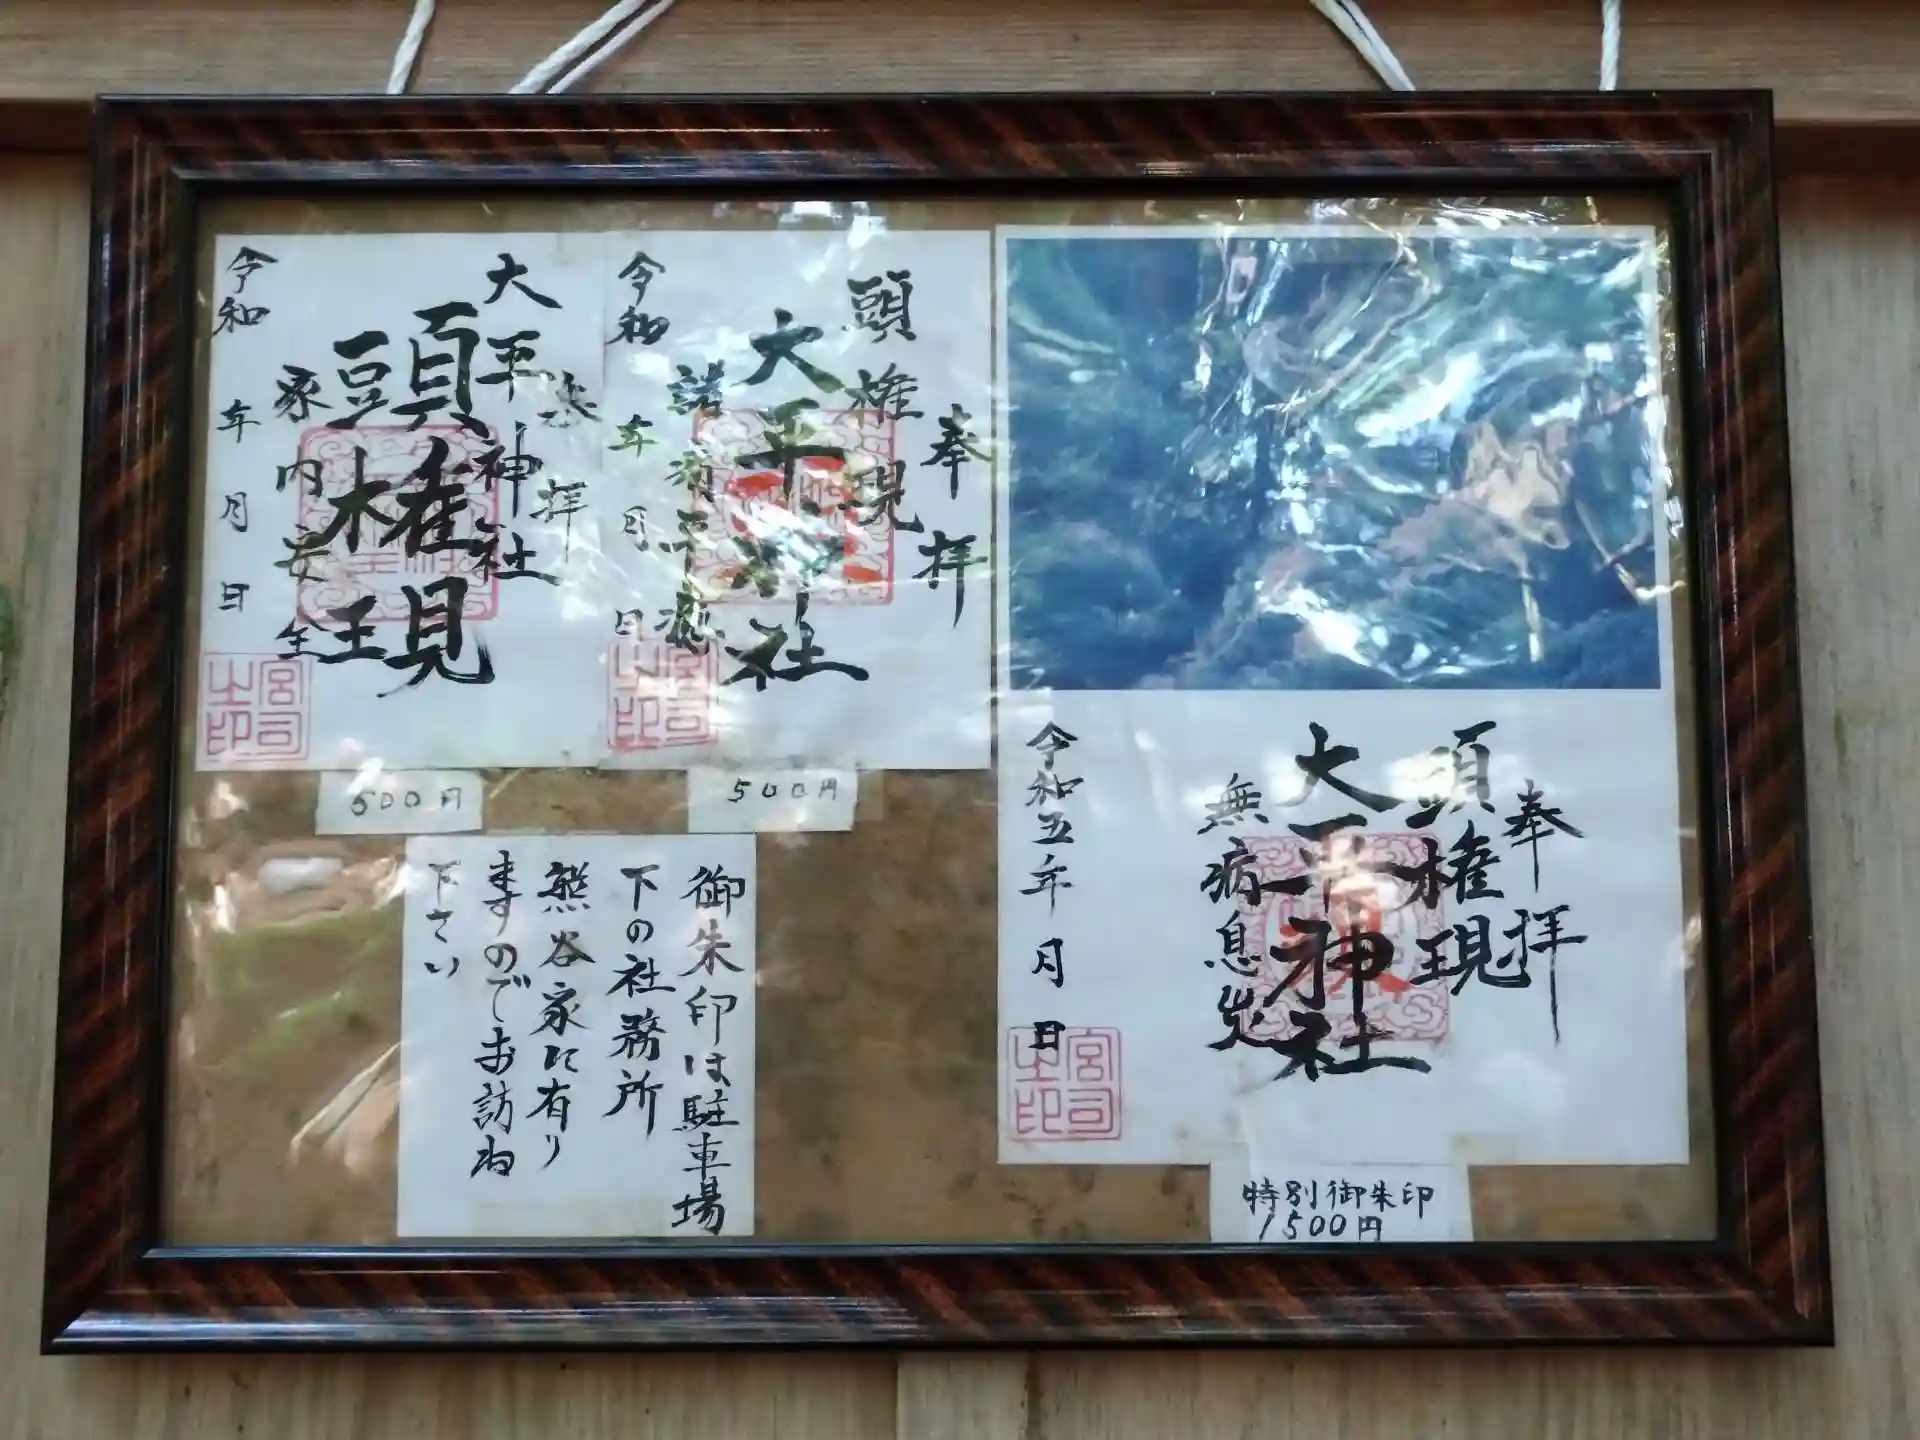 奉拝
大平神社
頭権現
家内安全
令和 年 月 日
宮司之印
500円
奉拝
頭権現
大平神社
諸病平癒
令和 年 月 日
宮司之印
500円
奉拝
頭権現
大平神社
無病息災
令和五年 月 日
宮司之印
特別御朱印
1500円
御朱印は駐車場
下の社務所
熊谷家に有り
ますのでお訪ね
下さい